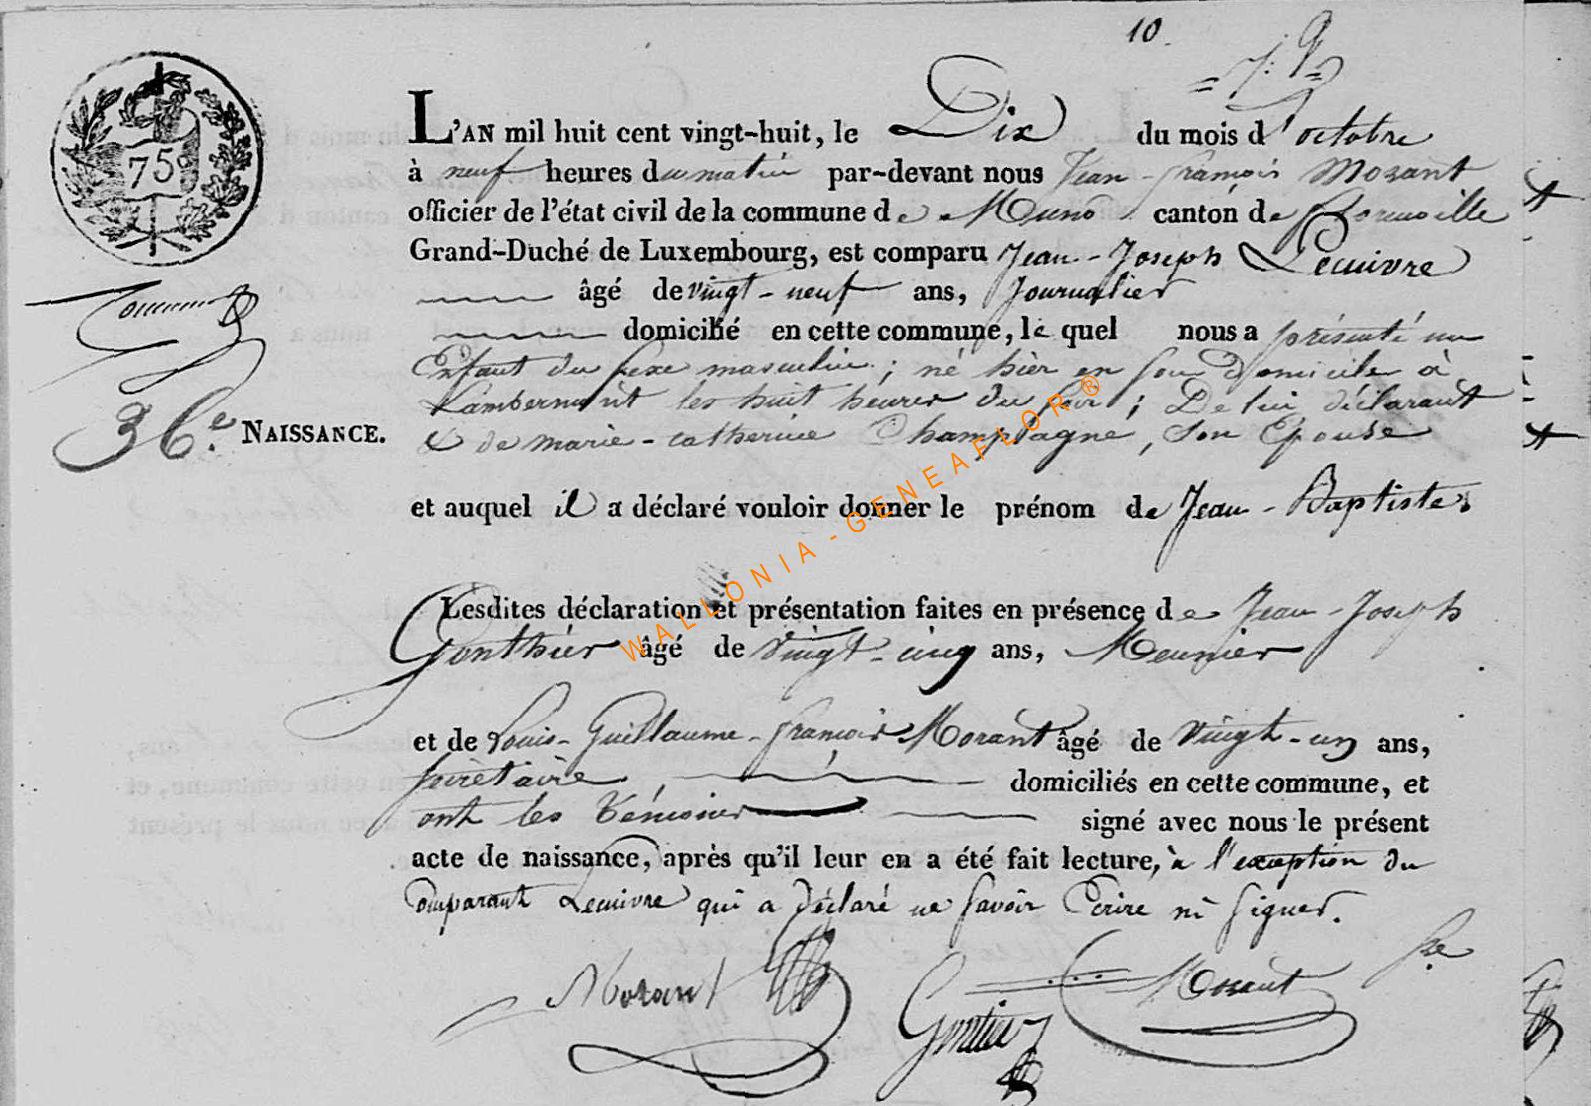 10
75c
L'AN mil huit cent vingt-huit, le Dix du mois d'octobre
à neuf heures du matin par-devant nous Jean-françois Mozant
officier de l'état civil de la commune de Muno canton de florenville
Grand-Duché de Luxembourg, est comparu Jean-Joseph Lecuivre
âgé de vingt-neuf ans, Journalier
domicilié en cette commune, le quel nous a présenté un
Enfant du sexe masculin; né hier en son Domicile à
Lambermont les huit heures du soir; De lui déclarant
36e. NAISSANCE.
& de marie-catherine Champagne, son Epouse
et auquel il a déclaré vouloir donner le prénom de Jean-Baptiste
Lesdites déclaration et présentation faites en présence de Jean-Joseph
Gonthier âgé de vingt-cinq ans, Meunier
et de Louis-Guillaume-françois Morant âgé de vingt-un ans,
secrétaire, domiciliés en cette commune, et
ont les témoins signé avec nous le présent
acte de naissance, après qu'il leur en a été fait lecture, à l'exception du
Comparant Lecuivre qui a déclaré ne savoir Ecrire ni signer.
Mozant Gontier Mozant
WALLONIA-GENEAFLOR®